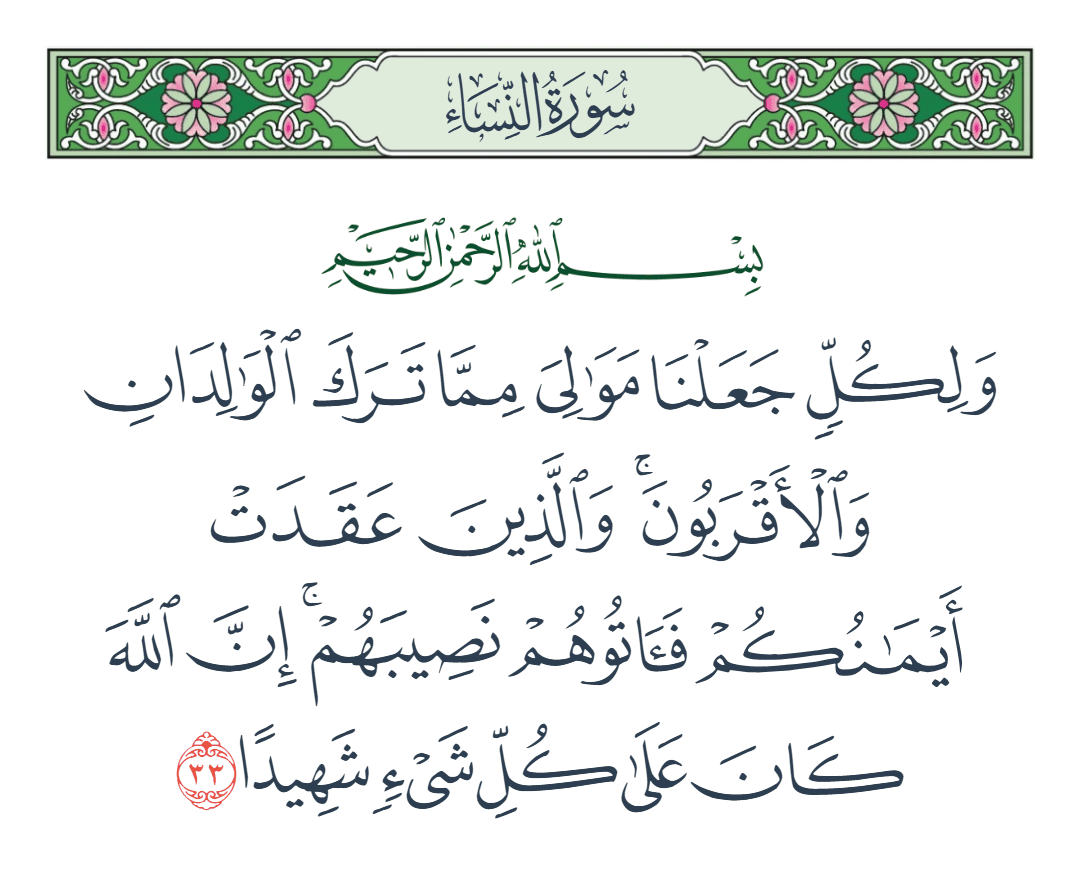 سُورَةُ النِّسَاءِ
بِسْمِ ٱللَّهِ ٱلرَّحْمَٰنِ ٱلرَّحِيمِ
وَلِكُلٍّ جَعَلْنَا مَوَٰلِىَ مِمَّا تَرَكَ ٱلْوَٰلِدَانِ
وَٱلْأَقْرَبُونَ ۚ وَٱلَّذِينَ عَقَدَتْ
أَيْمَٰنُكُمْ فَـَٔاتُوهُمْ نَصِيبَهُمْ ۚ إِنَّ ٱللَّهَ
كَانَ عَلَىٰ كُلِّ شَىْءٍ شَهِيدًا ٣٣